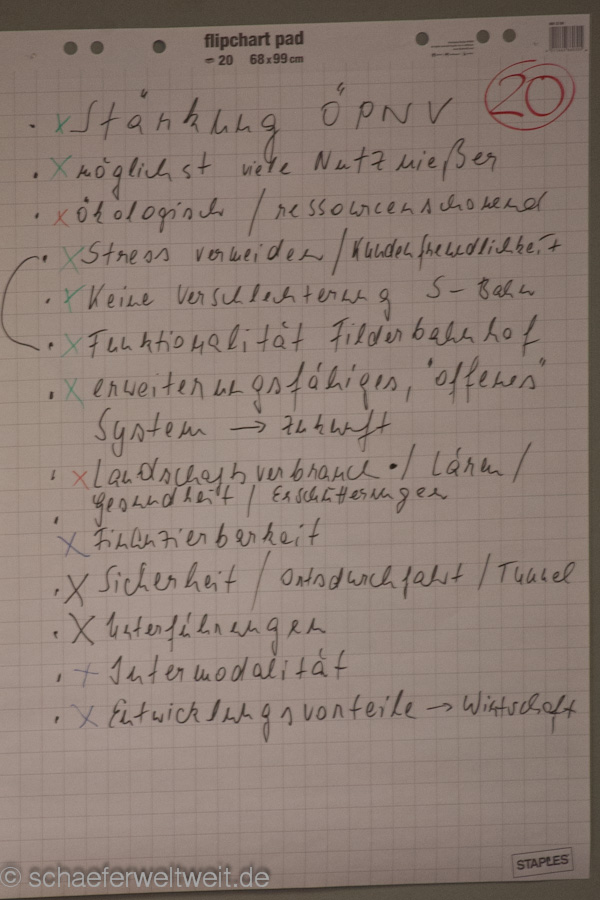 flipchart pad
20 68x99cm
20
• x Stärkung ÖPNV
• x möglichst viele Nutznießer
• x ökologisch / ressourcenschonend
• x Stress vermeiden / Kundenfreundlichkeit
• x Keine Verschlechterung S-Bahn
• x Funktionalität Filderbahnhof
• x erweiterungsfähiges, "offenes"
System → Zukunft
• x Landschaftsverbrauch • / Lärm /
Gesundheit / Erschütterungen
• x Finanzierbarkeit
• x Sicherheit / Ortsdurchfahrt / Tunnel
• x Unterführungen
• x Intermodalität
• x Entwicklungsvorteile → Wirtschaft
STAPLES
© schaeferweltweit.de